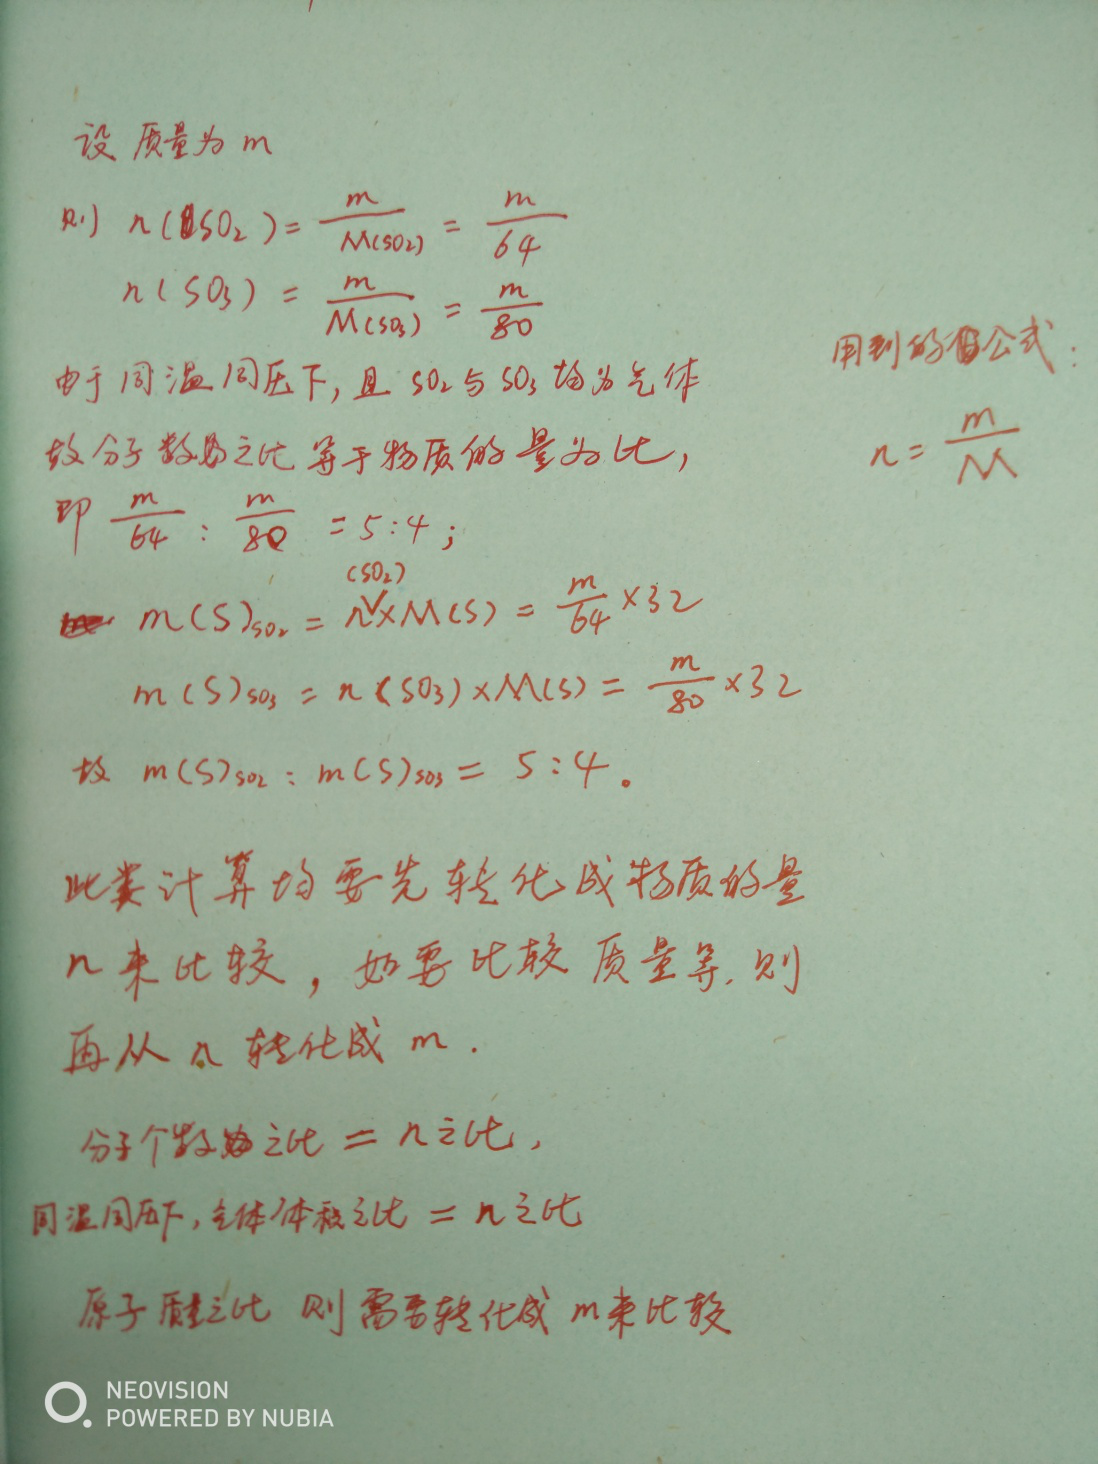 设质量为m
则 n(SO₂) = m/M(SO₂) = m/64
n(SO₃) = m/M(SO₃) = m/80
由于同温同压下,且SO₂与SO₃均为气体
故分子数之比等于物质的量为比,
即 m/64 : m/80 = 5:4;
m(S)SO₂ = n(SO₂)×M(S) = m/64 ×32
m(S)SO₃ = n(SO₃)×M(S) = m/80 ×32
故 m(S)SO₂ : m(S)SO₃ = 5:4。
用到的公式:
n = m/M
此类计算均要先转化成物质的量
n来比较,如要比较质量等,则
再从n转化成m.
分子个数之比 = n之比,
同温同压下,气体体积之比 = n之比
原子质量之比 则需要转化成m来比较
NEOVISION
POWERED BY NUBIA